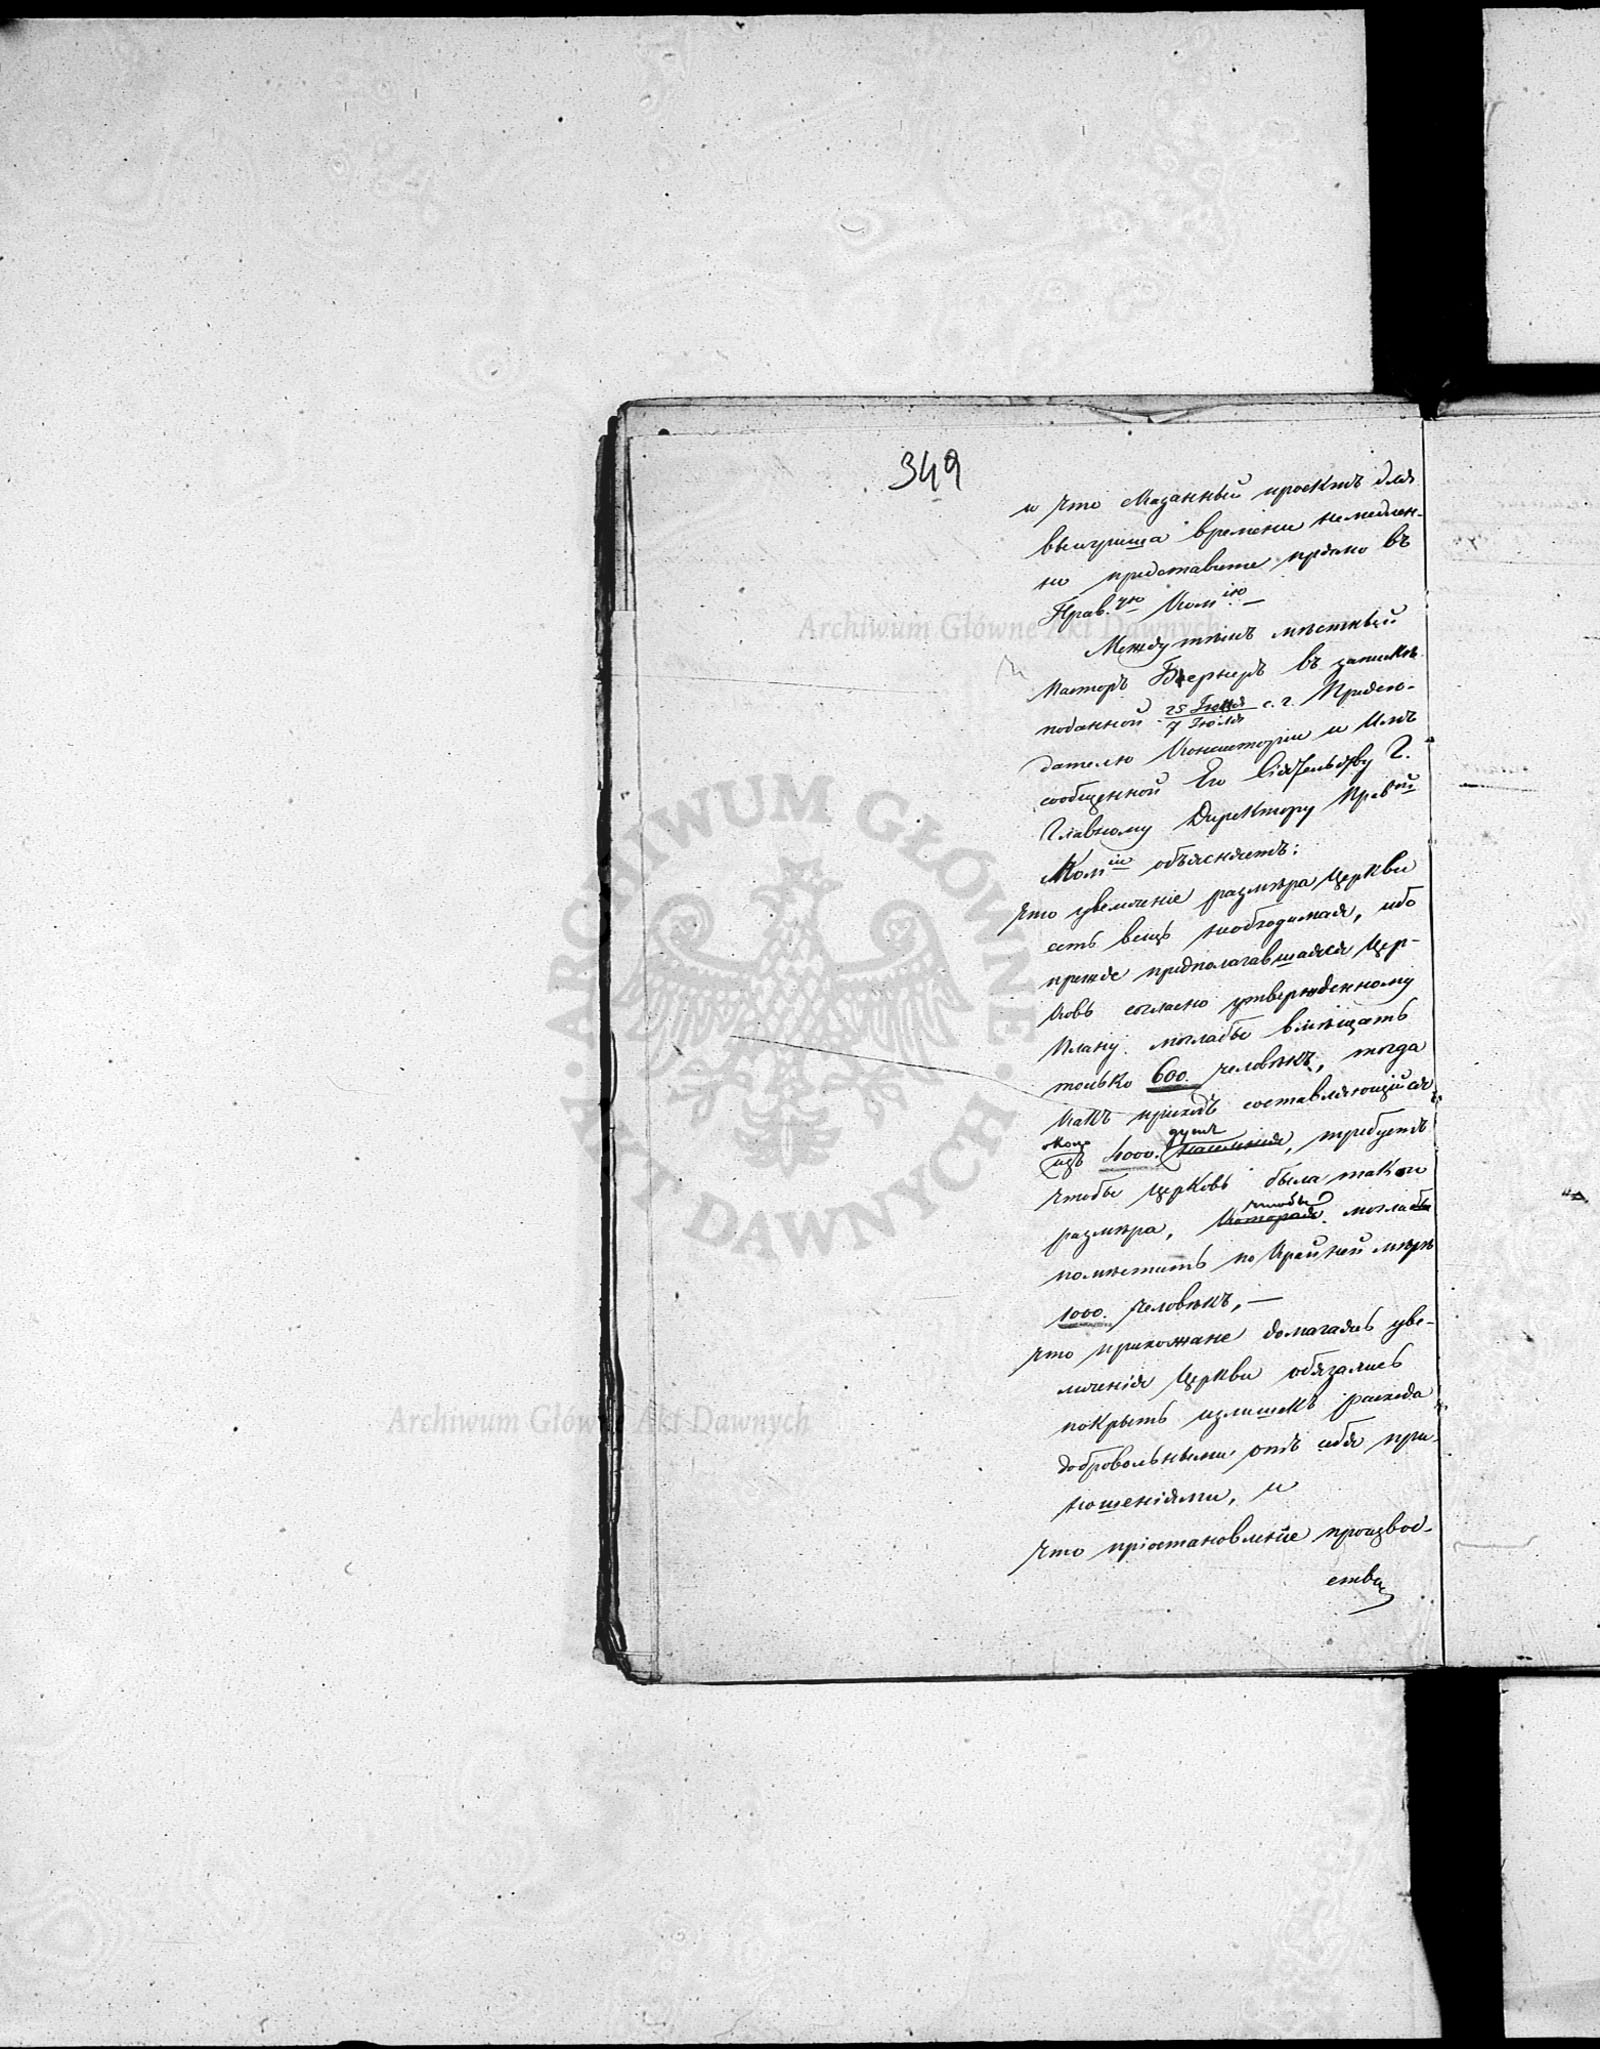 349
и что сказанный проектъ для
выигрыша времени немедлен-
но представите прямо въ
Прав.ую Ком.ію —
Между тѣмъ мѣстный
Пасторъ Бернеръ въ запискѣ
поданной 25 Іюня / 7 Іюля с. г. Предсѣ-
дателю Консисторіи и Имъ
сообщенной Его Сіятельству Г.
Главному Директору Прав.ой
Ком.іи объясняетъ:
Что увеличеніе размѣра Церкви
есть вещь необходимая, ибо
прежде предполагавшаяся Цер-
ковь согласно утвержденному
плану моглабы вмѣщать
только 600. человѣкъ, тогда
какъ приходъ составляющійся
около душъ
изъ 4000. населенія, требуетъ
чтобы Церковь была такого
чтобы
размѣра, которая моглабы
помѣстить по крайней мѣрѣ
1000. человѣкъ, —
Что прихожане домагаясь уве-
личенія Церкви обязались
покрыть излишекъ расхода
добровольными отъ себя при-
ношеніями, и
Что пріостановленіе производ-
ства
Archiwum Główne Akt Dawnych
Archiwum Główne Akt Dawnych
ARCHIWUM GŁÓWNE AKT DAWNYCH